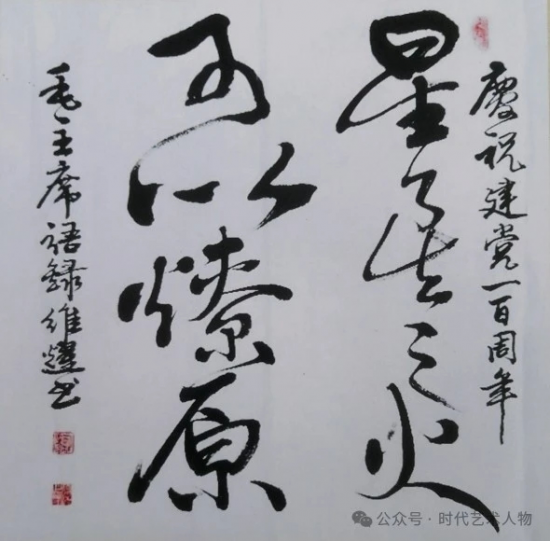 慶祝建党一百周年
星星之火
可以燎原
毛主席語録維耀书
公众号·时代艺术人物